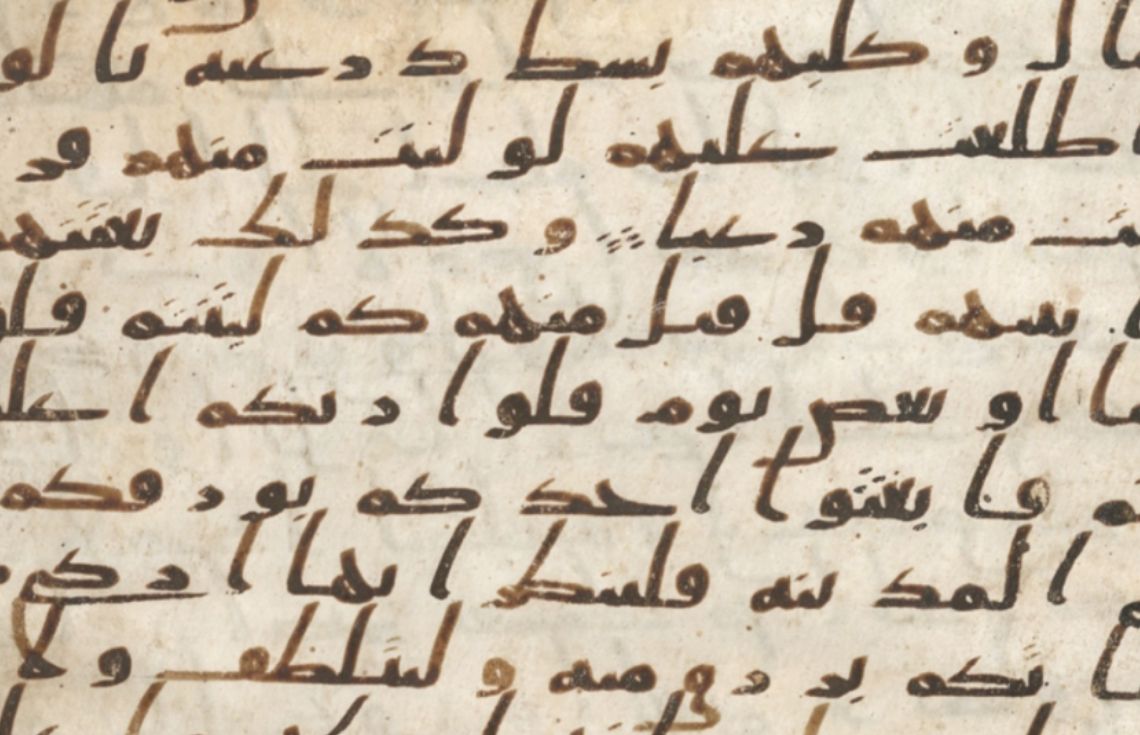 مال وكلبهم بسط ذرعيه بالو
اطلعت عليهم لوليت منهم فر
ت منهم رعبا وكذلك بعثنهم
ا بينهم قل قيل منهم كم لبثتم قلو
ما او بعض يوم قلوا ربكم اعلم
تم فابعثوا احدكم بورقكم
ى المدينه فلينظر ايها ازكى
تكم برزق منه وليتلطف ولا